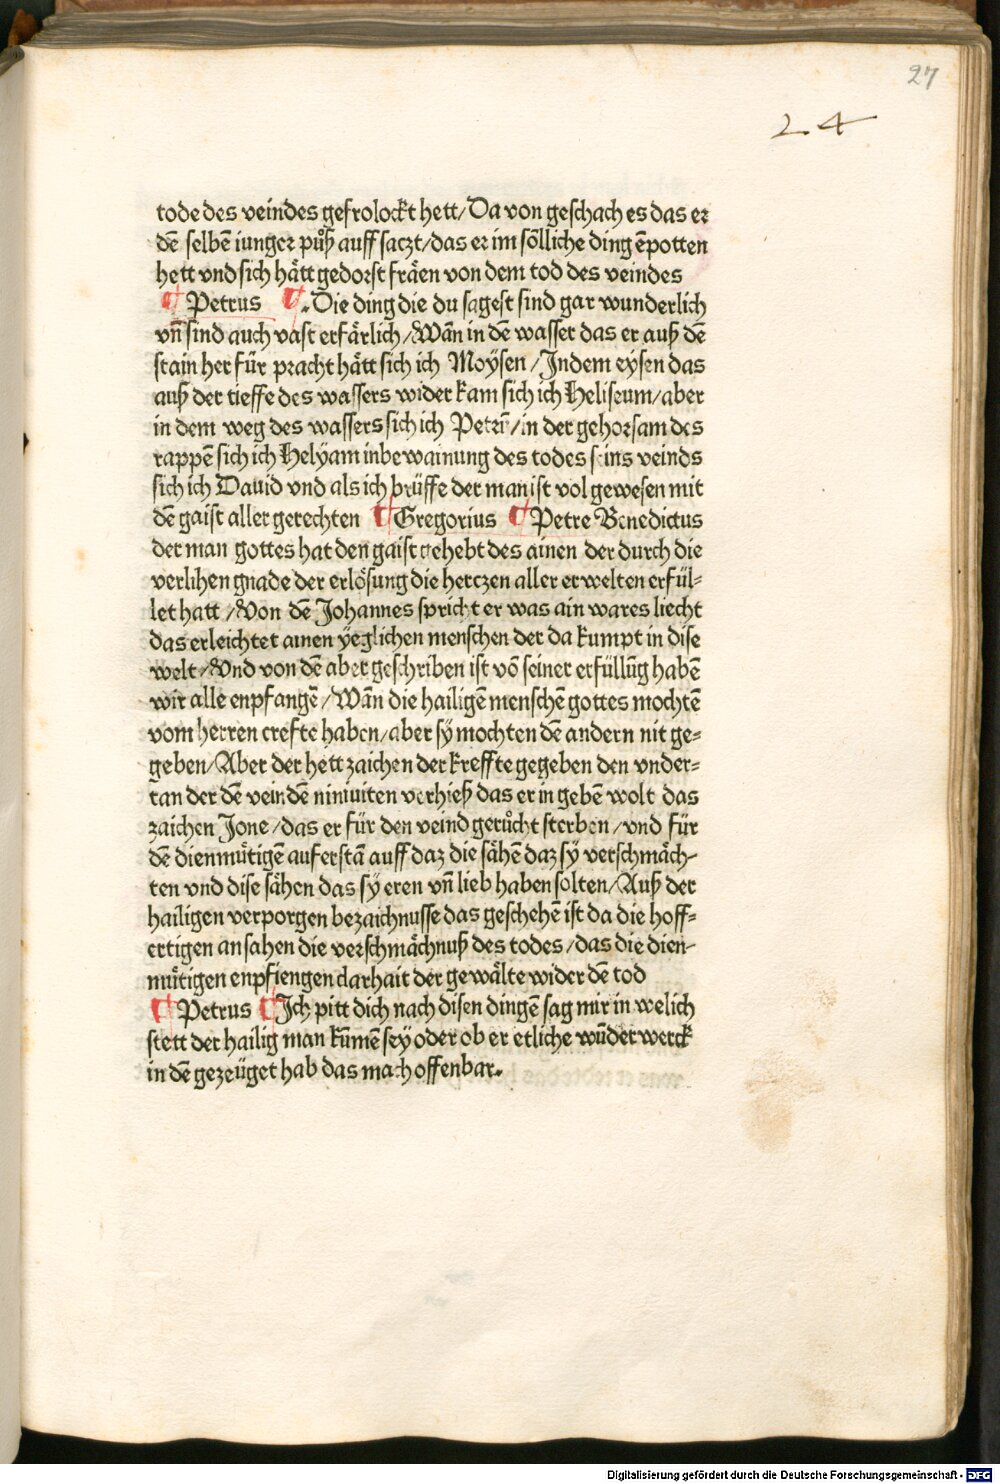 27
24
tode des veindes gefrolockt hett/Da von geschach es das er
dē selbē iunger půß auff saczt/das er im soͤlliche ding ēpotten
hett vnd sich haͤtt gedorst fraͤen von dem tod des veindes
¶ Petrus ¶ .Die ding die du sagest sind gar wunderlich
vn̄ sind auch vast erfaͤrlich/Wān in dē wasser das er auß dē
stain her fúr pracht haͤtt sich ich Moẏsen/In dem eysen das
auß der tieffe des wassers wider kam sich ich Heliseum/aber
in dem weg des wassers sich ich Petrū/in der gehorsam des
rappē sich ich Helẏam in bewainung des todes seins veinds
sich ich Dauid vnd als ich brüffe der man ist vol gewesen mit
dē gaist aller gerechten ¶ Gregorius ¶ Petre Benedictus
der man gottes hat den gaist gehebt des ainen der durch die
verlihen gnade der erloͤsung die herczen aller erwelten erfül=
let hatt/Von dē Johannes spricht er was ain wares liecht
das erleichtet ainen ẏeglichen menschen der da kumpt in dise
welt/Vnd von dē aber geschriben ist vō seiner erfüllūg habē
wir alle enpfangē/Wān die hailigē menschē gottes mochtē
vom herren crefte haben/aber sẏ mochten dē andern nit ge=
geben/Aber der hett zaichen der kreffte gegeben den vnder=
tan der dē veindē niniuiten verhieß das er in gebē wolt das
zaichen Jone/das er für den veind gerůcht sterben/vnd für
dē dienmuͤtigē auferstā auff daz die saͤhē daz sẏ verschmaͤch=
ten vnd dise saͤhen das sẏ eren vn̄ lieb haben solten/Auß der
hailigen verporgen bezaichnusse das geschehē ist da die hoff=
ertigen ansahen die verschmaͤchnuß des todes/das die dien=
muͤtigen enpfiengen clarhait der gewaͤlte wider dē tod
¶ Petrus ¶ Ich pitt dich nach disen dingē sag mir in welich
stett der hailig man kūmē seẏ oder ob er etliche wūder werck
in dē gezeüget hab das mach offenbar.
Digitalisierung gefördert durch die Deutsche Forschungsgemeinschaft - DFG